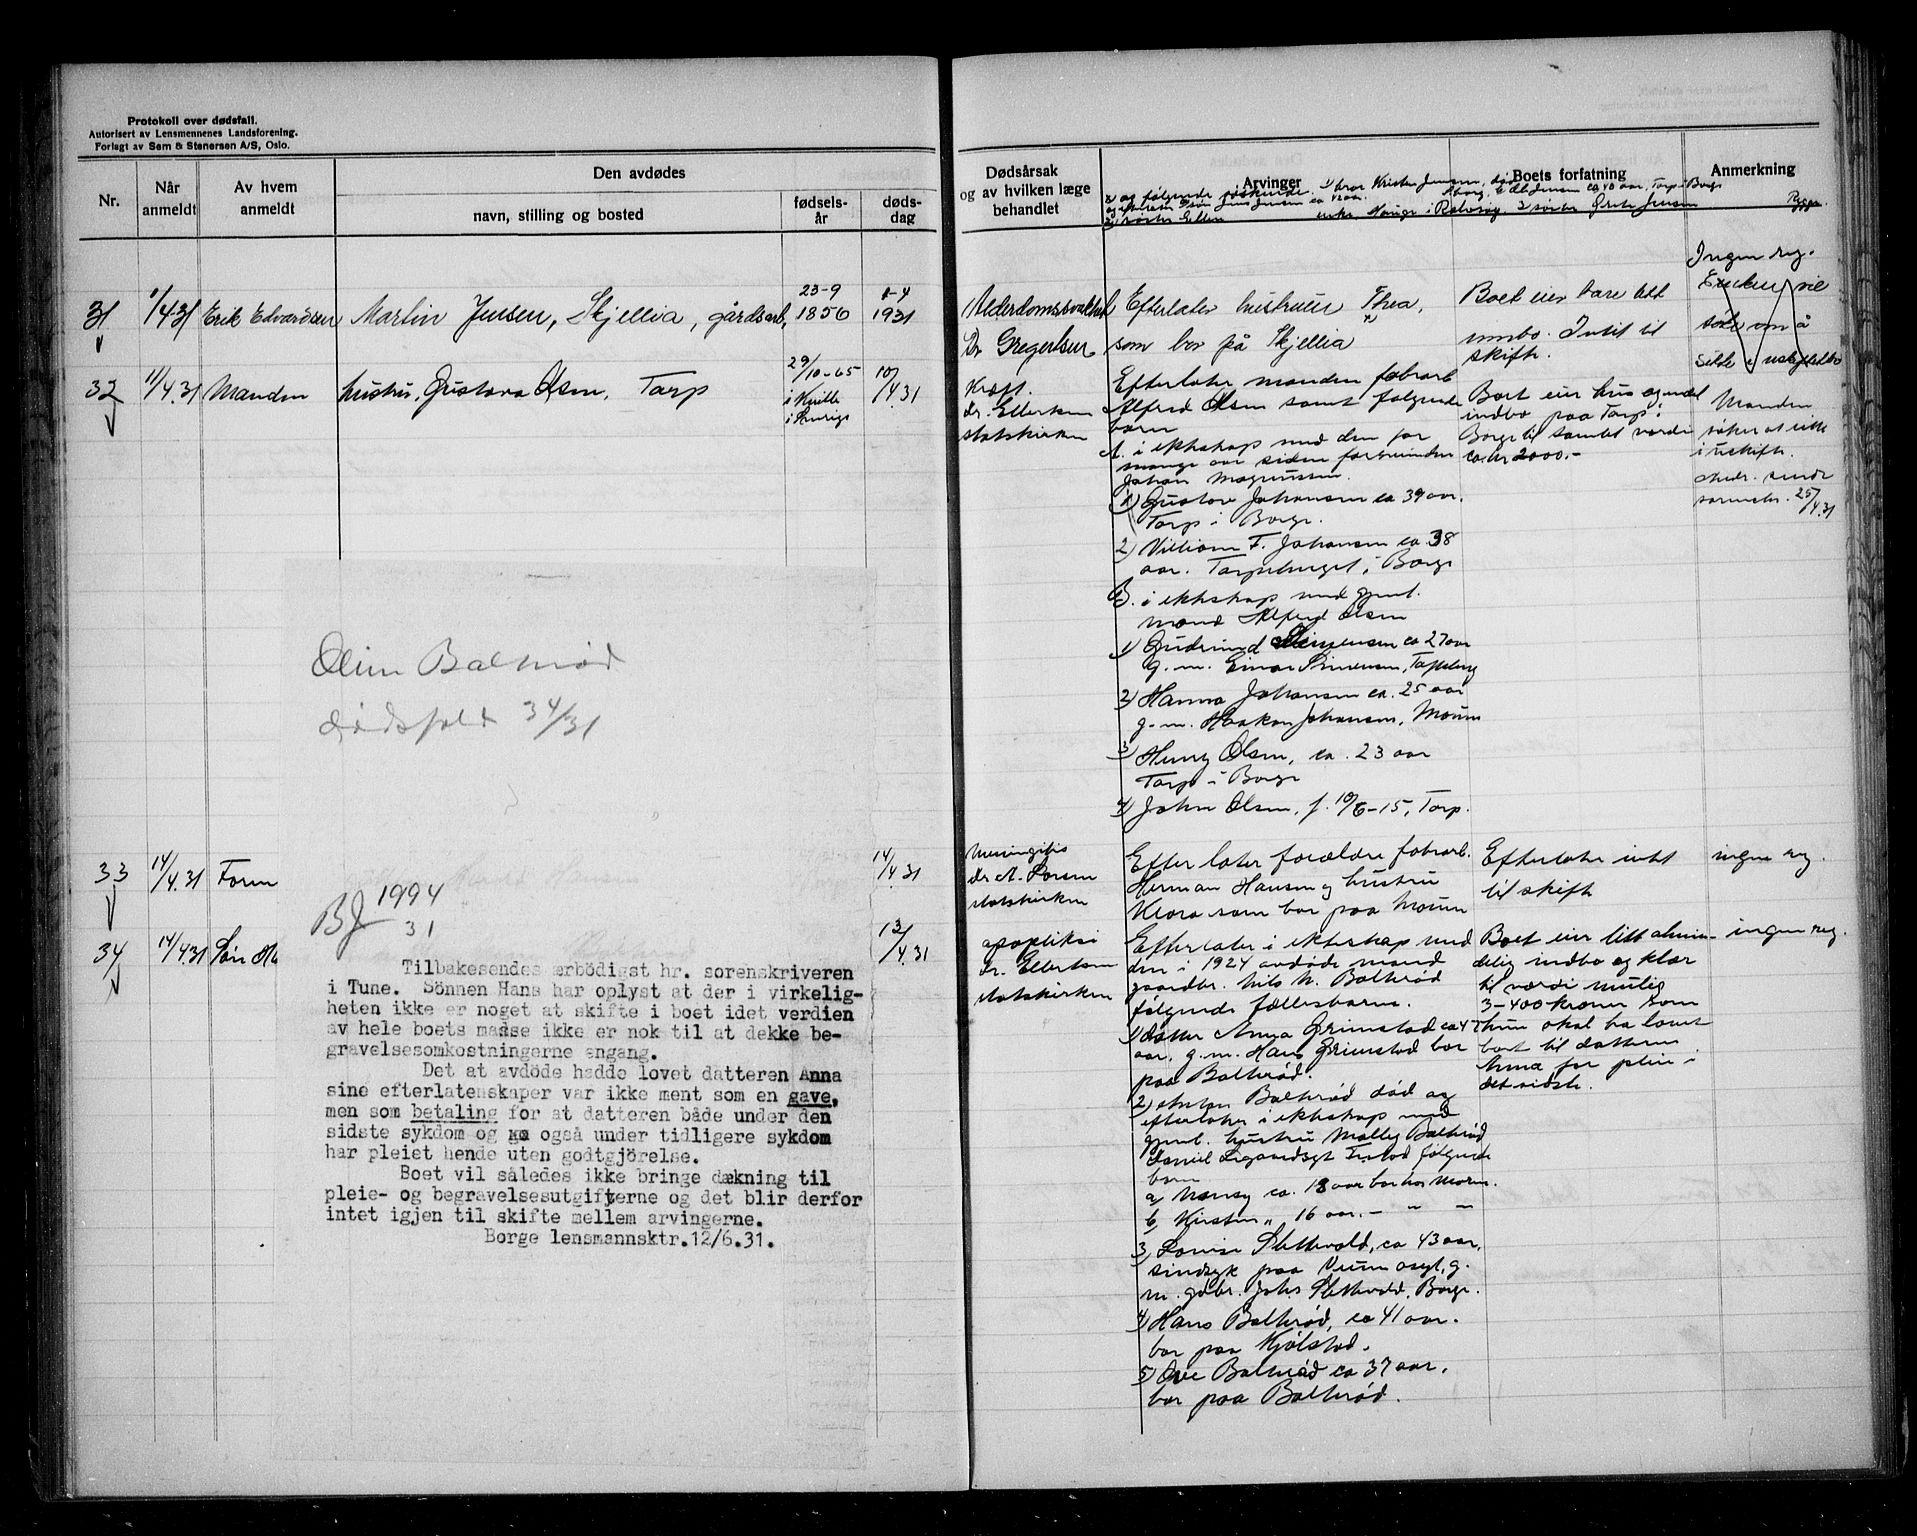 Protokoll over dødsfall.
Autorisert av Lensmennenes Landsforening.
Forlagt av Sem & Stenersen A/S, Oslo.
Nr.
Når anmeldt
Av hvem anmeldt
Den avdødes
navn, stilling og bosted
fødsels-år
døds-dag
Dødsårsak og av hvilken læge behandlet
Arvinger
Boets forfatning
Anmerkning
2) og følgende søskende. 1) bror Kristen Jensen, død
og efterlater Søn Jens Jensen ca 42 aar.
3) søster Ellen
Rygge.
31
1/4 31
Erik Edvardsen
Martin Jensen, Skjellia, gårdsarb,
23-9
1856
1-4
1931
Dr Gregertsen
Efterlater hustruen Thea,
som bor på Skjellia
Boet eier bare litt
innbo. Intet til
skifte.
Ingen reg.
Enken vil
søke om å
sitte i uskiftet bo
32
11/4.31
Manden
hustru, Gustava Olsen, Torp
29/10-65
i Sverige
10/4.31
Kræft.
dr. Ellertsen
statskirken
Efterlater manden fabrarb
Alfred Olsen samt følgende
barn
A. i ekteskap med den for
mange aar siden forsvundne
Johan Magnussen.
1) Gustav Johansen ca 39 aar.
Torp i Borge.
2) Villiam F. Johansen ca 38
aar. Torpeberget i Borge
B. i ekteskap med gjenl.
mand Alfred Olsen
1) Gudrund Simensen ca 27 aar
g. m. Einar Simensen, Torpeberg
2) Hanna Johansen ca. 25 aar
g. m. Haakon Johansen, Moum
3) Henry Olsen, ca. 23 aar
Torp i Borge
4) John Olsen, f. 10/6-15, Torp.
Boet eier hus og endel
indbo paa Torp i
Borge til samlet værdi
ca. kr 2000.-
Manden
søker at sitte
i uskifte.
25/4.31
Oline Balterød
dødsfald 34/31
33
14/4.31
Faren
14/4.31
Meningitis
dr A. Larsen
statskirken
Efterlater forældre fabrarb.
Herman Hansen og hustru
Klara som bor paa Moum
Efterlater intet
til skifte
ingen reg.
BJ 1994
31
34
14/4.31
13/4.31
apopleksi
dr. Ellertsen
statskirken
Efterlater i ekteskap med
den i 1924 avdøde mand
gaardbr. Nils N. Balterød
følgende fællesbarn.
1) datter Anna Grimstad ca 47
aar, g. m. Hans Grimstad bor
paa Balterød.
2) Anton Balterød død og
efterlater i ekteskap med
gjenl. hustru Molly Balterød
følgende
barn
a) Nancy ca. 18 aar bor hos moren.
b) Kirsten " 16 aar. - " -
3) Lovise Slettevold, ca 43 aar,
sindsyk paa Veum asyl, g.
m. gdbr. Johs Slettevold, Borge.
4) Hans Balterød, ca 41 aar.
bor paa Kjølstad.
5) Ove Balterød ca 37 aar.
bor paa Balterød.
Boet eier litt almin-
delig indbo og klær
til værdi mulig
3-400 kroner som
hun skal ha lovet
bort til datteren
Anna for pleie i
det sidste.
ingen reg.
Tilbakesendes ærbödigst hr. sorenskriveren
i Tune. Sönnen Hans har oplyst at der i virkelig-
heten ikke er noget at skifte i boet idet verdien
av hele boets masse ikke er nok til at dekke be-
gravelsesomkostningerne engang.
Det at avdöde hadde lovet datteren Anna
sine efterlatenskaper var ikke ment som en gave,
men som betaling for at datteren både under den
sidste sykdom og også under tidligere sykdom
har pleiet hende uten godtgjörelse.
Boet vil således ikke bringe dækning til
pleie- og begravelsesutgifterne og det blir derfor
intet igjen til skifte mellem arvingerne.
Borge lensmannsktr.12/6.31.